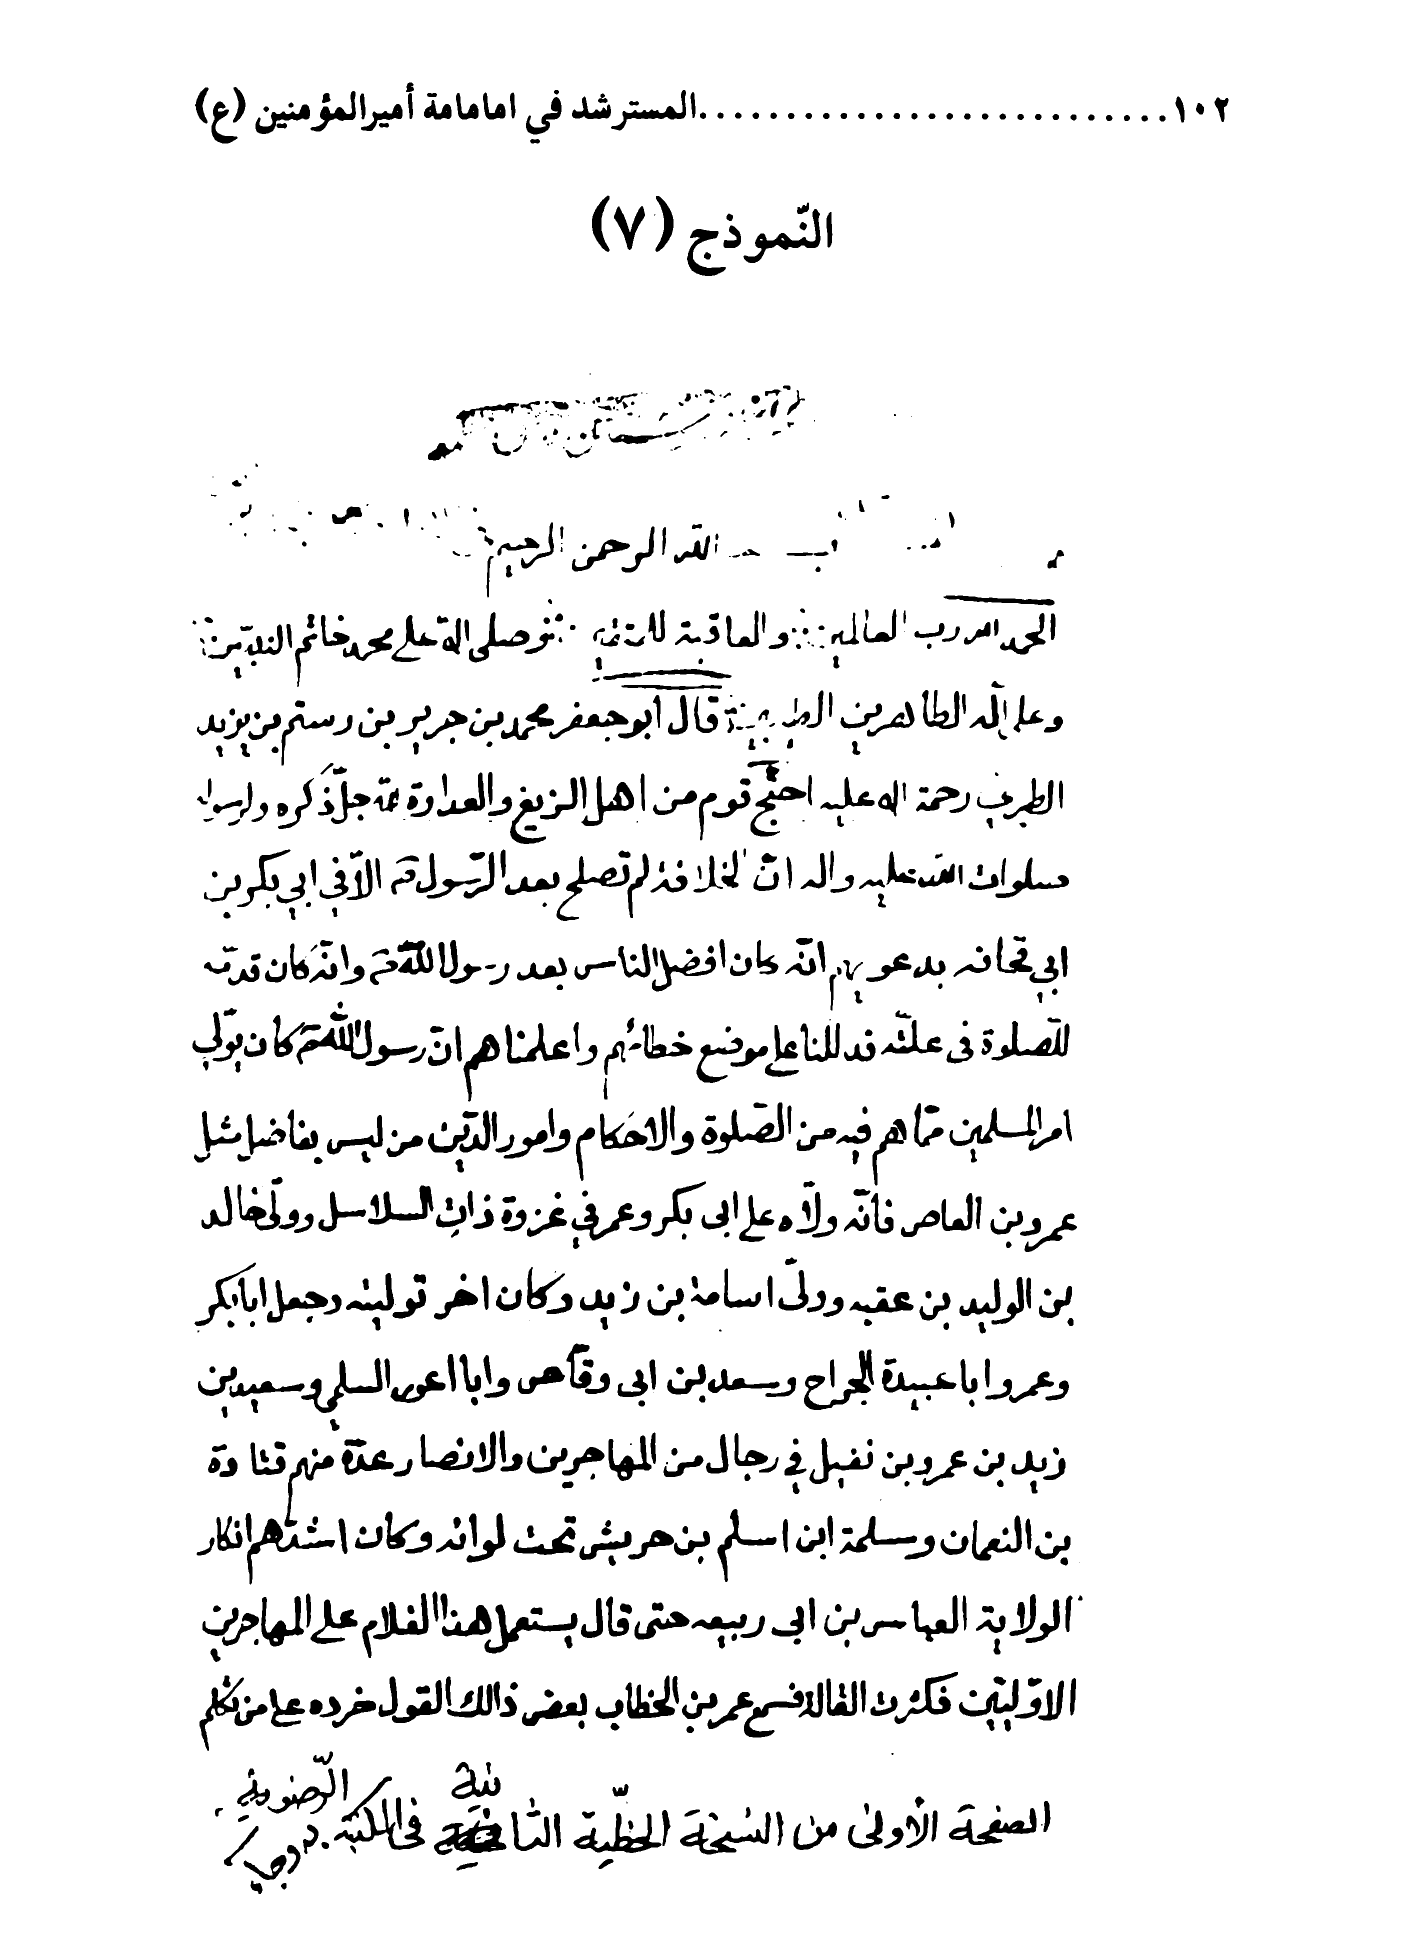 ١٠٢...........................المسترشد في امامامة أميرالمؤمنين (ع)
النّموذج (٧)
الله الرحمن الرحيم
الحمد لله رب العالمين والعاقبة للمتقين وصلى الله على محمد خاتم النبيّين
وعلى اله الطاهرين الطيبين قال ابو جعفر محمد بن جرير بن رستم بن يزيد
الطبري رحمة الله عليه احتج قوم من اهل الزيغ والعداوة لله جلّ ذكره ولرسوله
صلوات الله عليه واله انّ الخلافة لم تصلح بعد الرّسول ص الاّ في ابي بكر بن
ابي قحافه بدعويهم انّه كان افضل الناس بعد رسول الله ص وانّه كان قدمه
للصّلوة فى علّته فدللنا على موضع خطائهم واعلمناهم انّ رسول الله ص كان يولّي
امر المسلمين ممّا هم فيه من الصّلوة والاحكام وامور الدّين من ليس بفاضل مثل
عمرو بن العاص فانّه ولاّه على ابى بكر وعمر في غزوة ذات السلاسل وولّى خالد
بن الوليد بن عقبه وولّى اسامة بن زيد وكان اخر توليته وجعل ابابكر
وعمر وابا عبيدة الجراح وسعد بن ابى وقّاص وابا اعور السلمي وسعيد بن
زيد بن عمرو بن نفيل في رجال من المهاجرين والانصار عدّة منهم قتادة
بن النعمان وسلمة ابن اسلم بن حريش تحت لوائه وكان اشدّهم انكار
الولاية العباس بن ابى ربيعه حتى قال يستعمل هذا الغلام على المهاجرين
الاوّليّن فكثرت القالة فسمع عمر بن الخطاب بعض ذالك القول فرده على من تكلم
الصفحة الأولى من النسخة الخطّية الثانية فى المكتبة الرّضوية